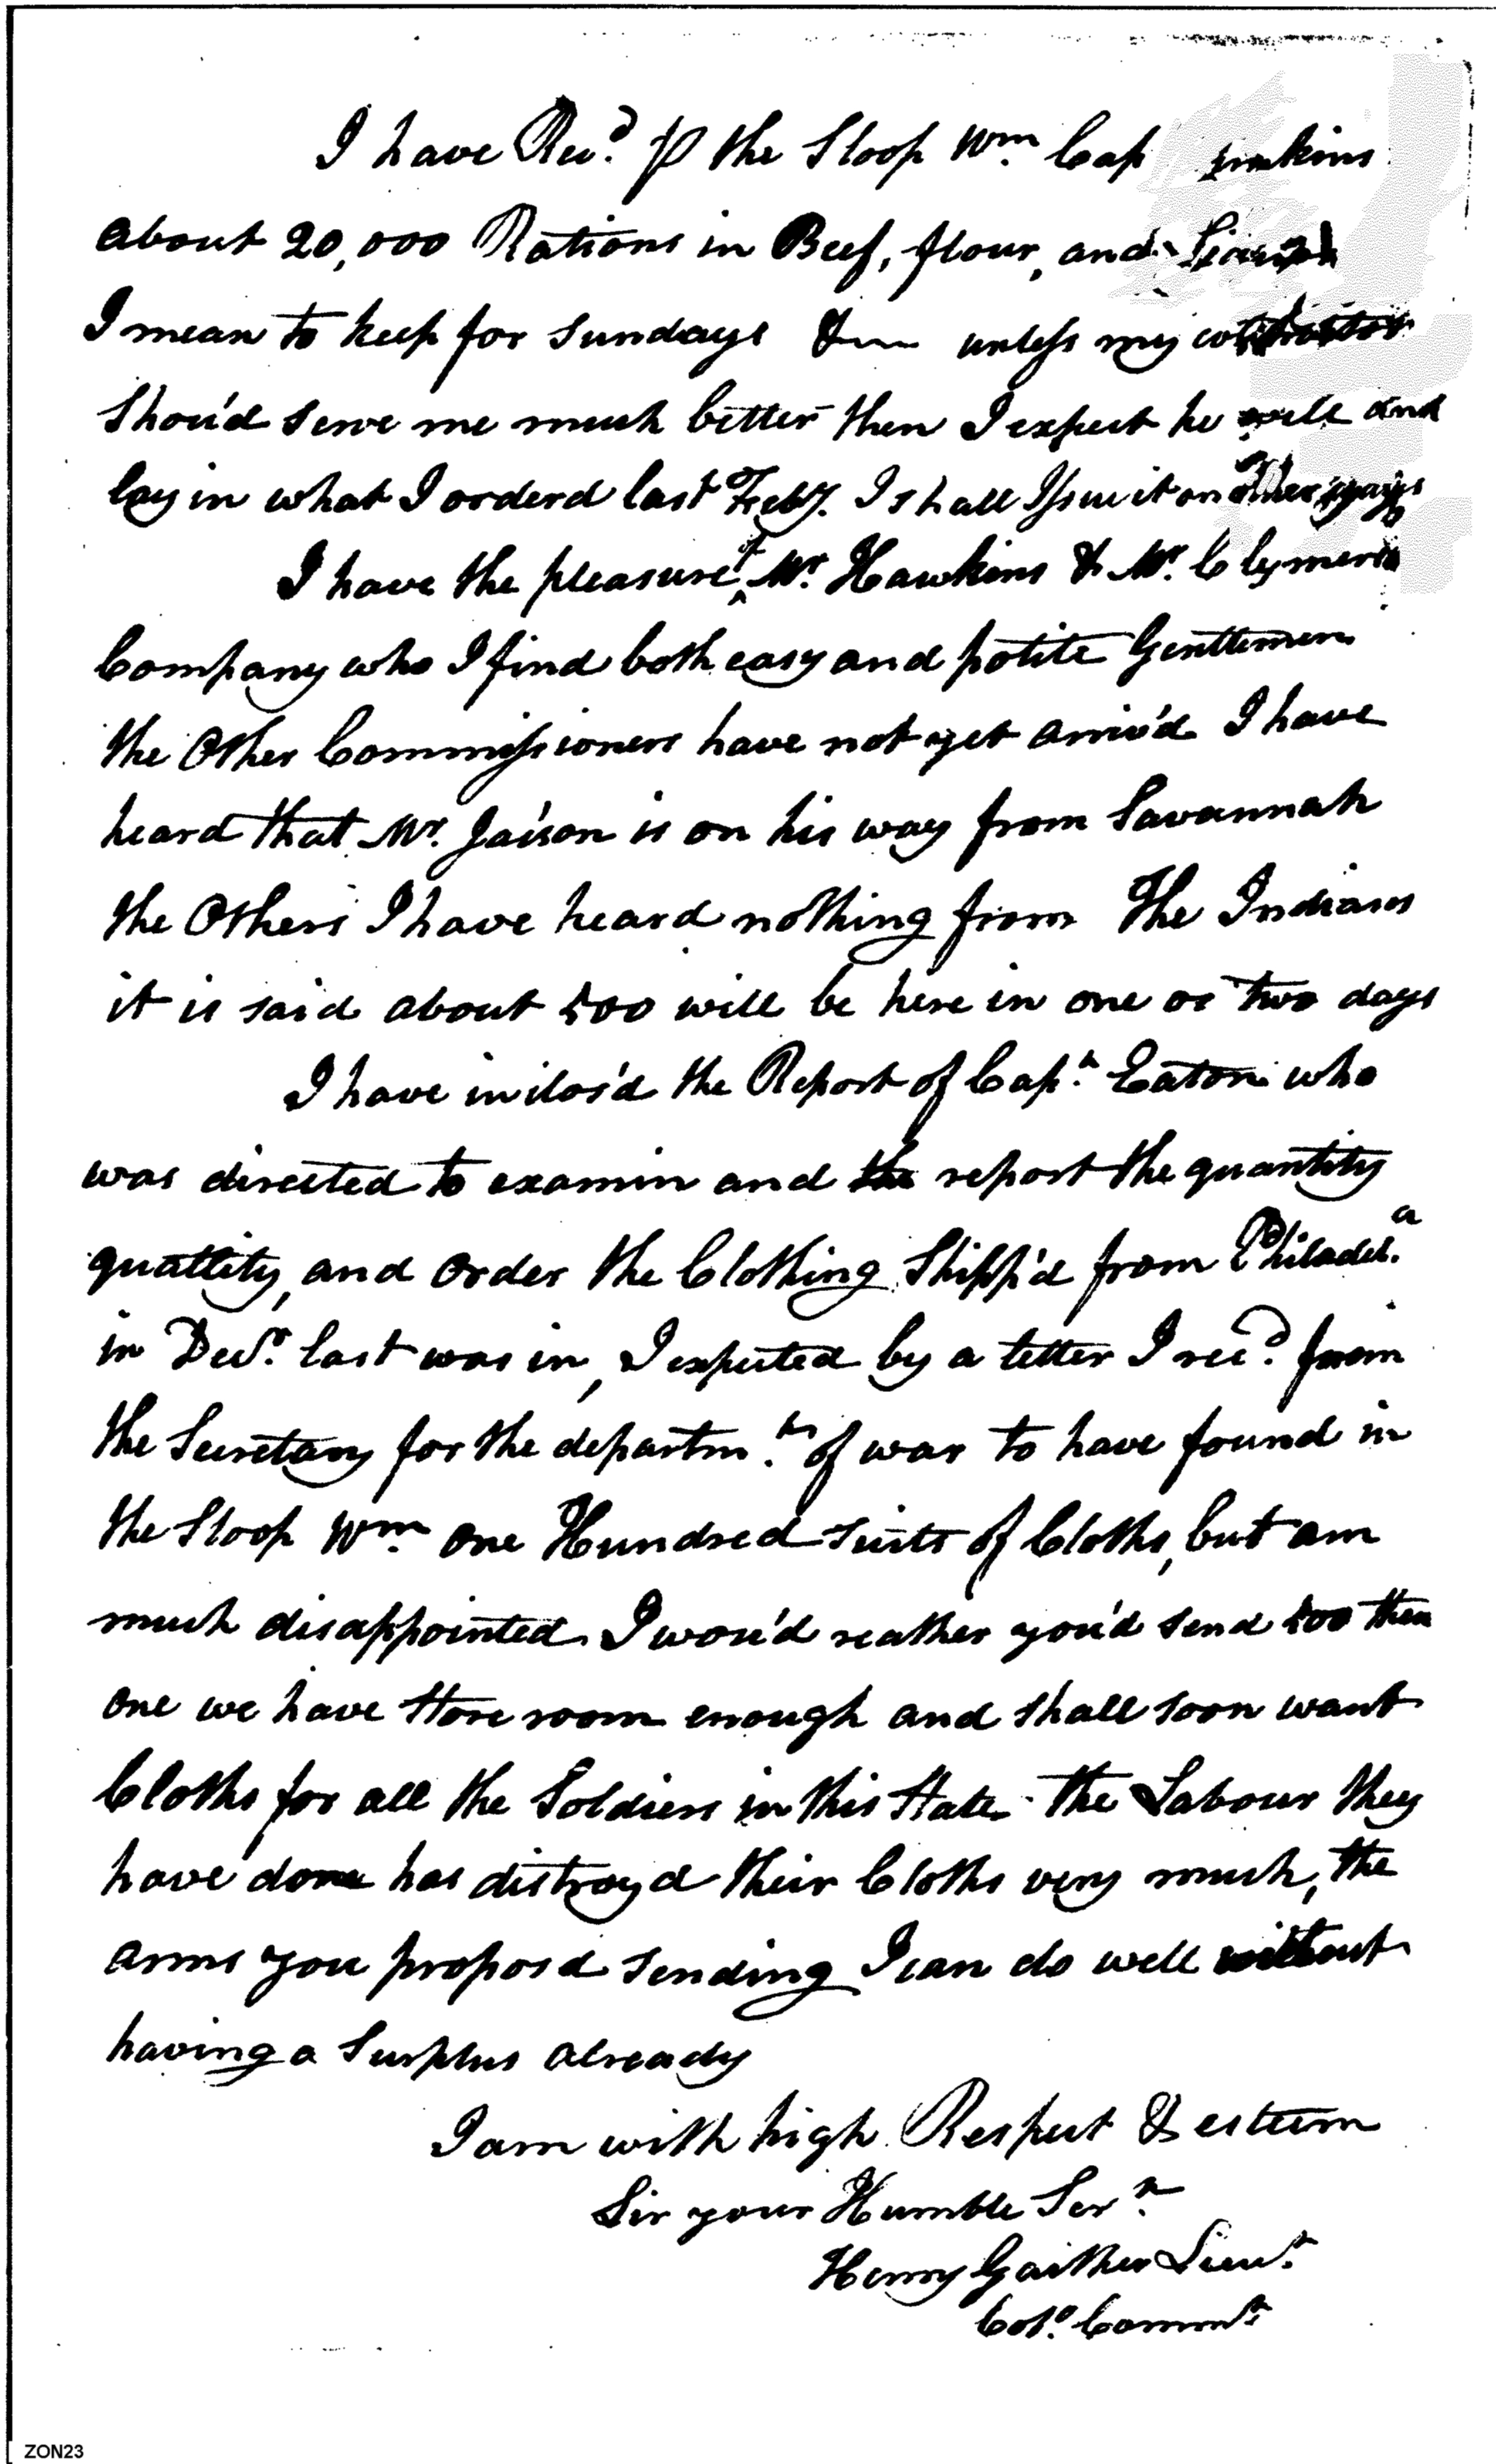 I have Recd. ⅌ the Sloop Wm. Cap
about 20,000 Rations in Beef, flour, and
I mean to keep for Sundays & unless my contractor
Shou'd serve me much better then I expect he will and
lay in what I orderd last Feby. I shall Issue it on other days
I have the pleasure of Mr. Hawkins & Mr. Clymers
Company who I find both easy and polite Gentlemen
the Other Commissioners have not yet arriv'd I have
heard that Mr. Jaison is on his way from Savannah
the Others I have heard nothing from The Indians
it is said about 500 will be here in one or two days
I have inclos'd the Report of Capt. Eaton who
was directed to examin and the report the quantity
quallity, and order the Clothing Shipp'd from Philadel.a
in Decr. last was in, I expected by a letter I recd. from
the Secretary for the departm.t of war to have found in
the Sloop Wm. one Hundred suits of Cloths, but am
much disappointed I wou'd reather you'd send 500 then
one we have Store room enough and shall soon want
Cloths for all the Soldiers in this State the Labour they
have done has distroyd their Cloths very much, the
arms you proposd sending I can do well without
having a Surplus already
I am with high Respect & esteem
Sir your Humble Sert.
Henry Gaither Lieut.
Col.o Commt.
ZON23